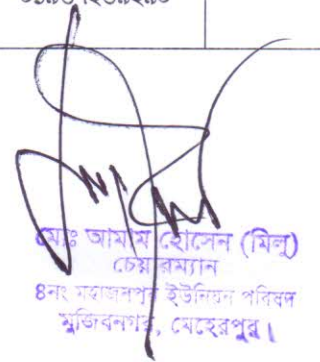 মোঃ আমাম হোসেন (মিলু)
চেয়ারম্যান
৪নং মহাজনপুর ইউনিয়ন পরিষদ
মুজিবনগর, মেহেরপুর।